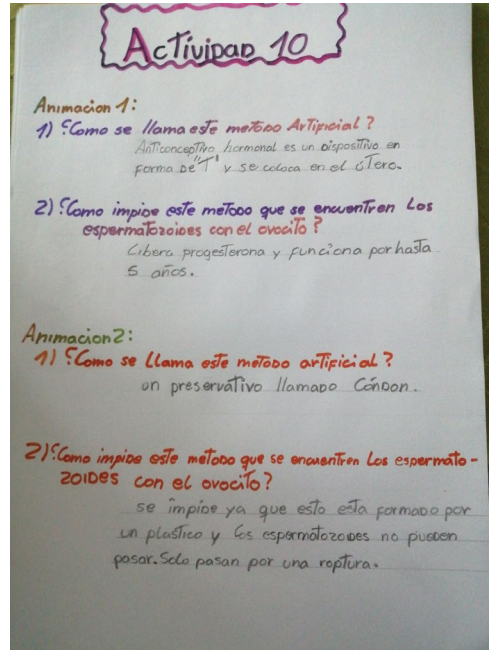 Actividad 10
Animacion 1:
1) ¿Como se llama este metodo Artificial?
Anticonceptivo hormonal es un dispositivo en
forma de "T" y se coloca en el útero.
2) ¿Como impide este metodo que se encuentren Los
espermatozoides con el ovocito?
Libera progesterona y funciona por hasta
5 años.
Animacion 2:
1) ¿Como se LLama este metodo artificial?
un preservativo llamado Cóndon.
2) ¿Como impide este metodo que se encuentren Los espermato-
zoides con el ovocito?
se impide ya que esto esta formado por
un plastico y los espermatozoides no pueden
pasar. Solo pasan por una roptura.